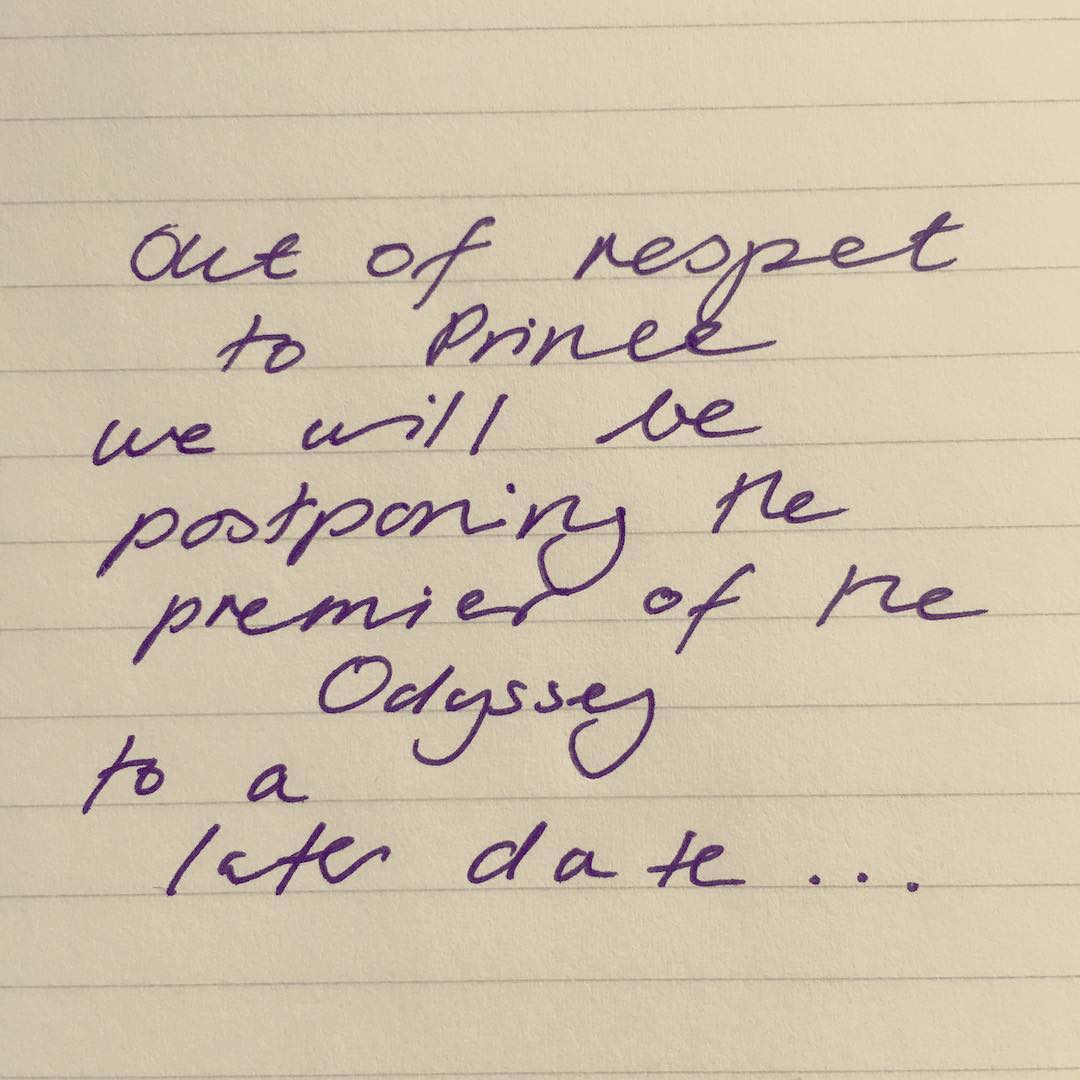 Out of respet
to Prince
we will be
postponing the
premier of the
Odyssey
to a
later date...